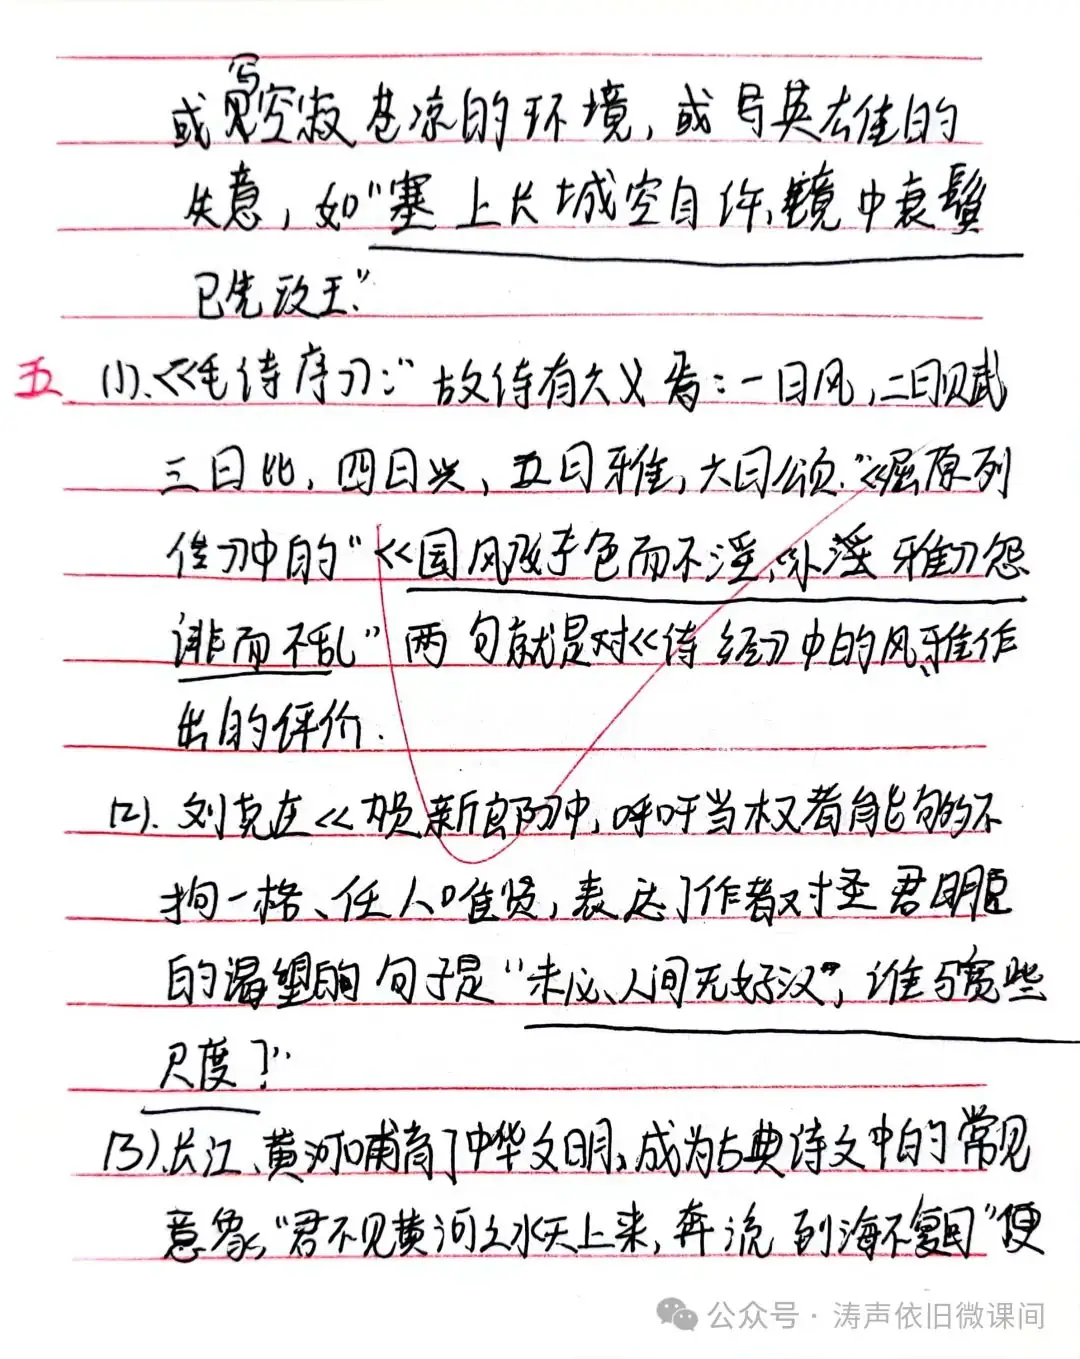 写
或见空寂苍凉的环境，或写英雄的
失意，如"塞上长城空自许、镜中衰鬓
已先改王."
五 (1)、《毛诗序》："故诗有六义焉：一曰风，二曰赋
三曰比，四曰兴，五曰雅，六曰颂."《屈原列
传》中的"《国风》好色而不淫，《小淫雅》怨
诽而不乱"两句就是对《诗经》中的风、雅作
出的评价.
(2). 刘克庄《贺新郎》中，呼吁当权者能够的不
拘一格、任人唯贤，表达了作者对圣君明臣
的渴望的句子是"未必人间无好汉"，谁与宽些
尺度？"
(3)、长江、黄河哺育了中华文明，成为古典诗文中的常见
意象，"君不见黄河之水天上来，奔流到海不复回"便
公众号·涛声依旧微课间